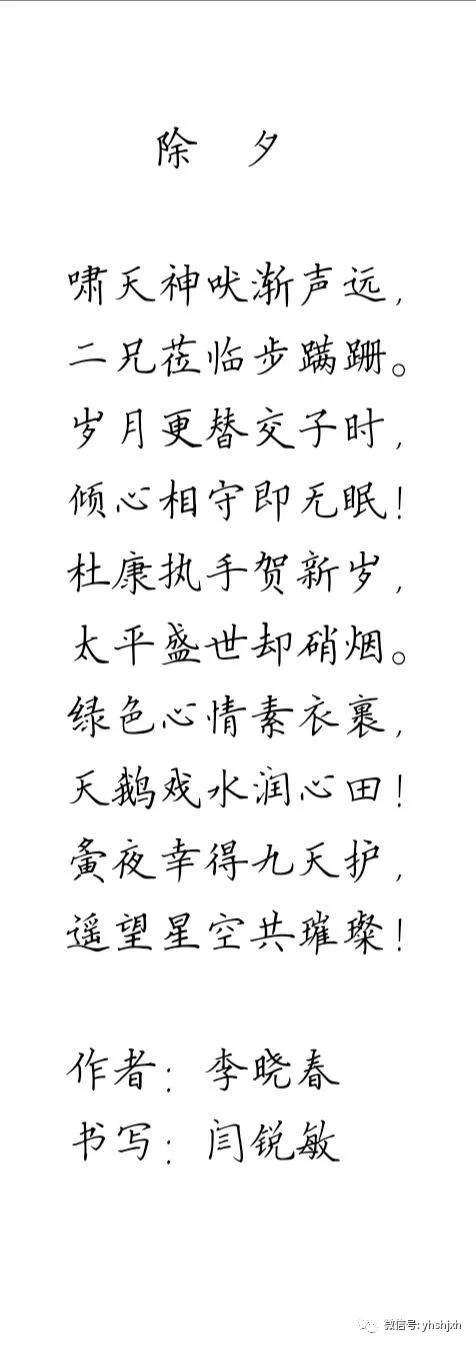 除 夕
啸天神吠渐声远，
二兄莅临步蹒跚。
岁月更替交子时，
倾心相守即无眠！
杜康执手贺新岁，
太平盛世却硝烟。
绿色心情素衣裹，
天鹅戏水润心田！
夤夜幸得九天护，
遥望星空共璀璨！
作者：李晓春
书写：闫锐敏
微信号: yhshjxh